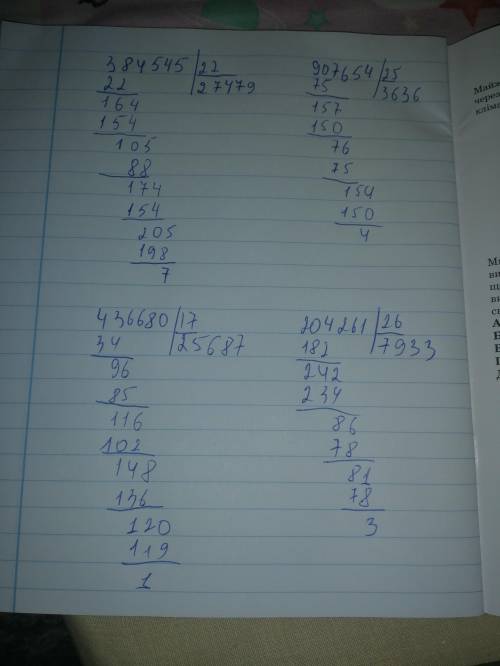 384545 22
22 27479
164
154
105
88
174
154
205
198
7
907654 25
75 3636
157
150
76
75
154
150
4
436680 17
34 25687
96
85
116
102
148
136
120
119
1
204261 26
182 7933
242
234
86
78
81
78
3
Майж
через
клім
ви